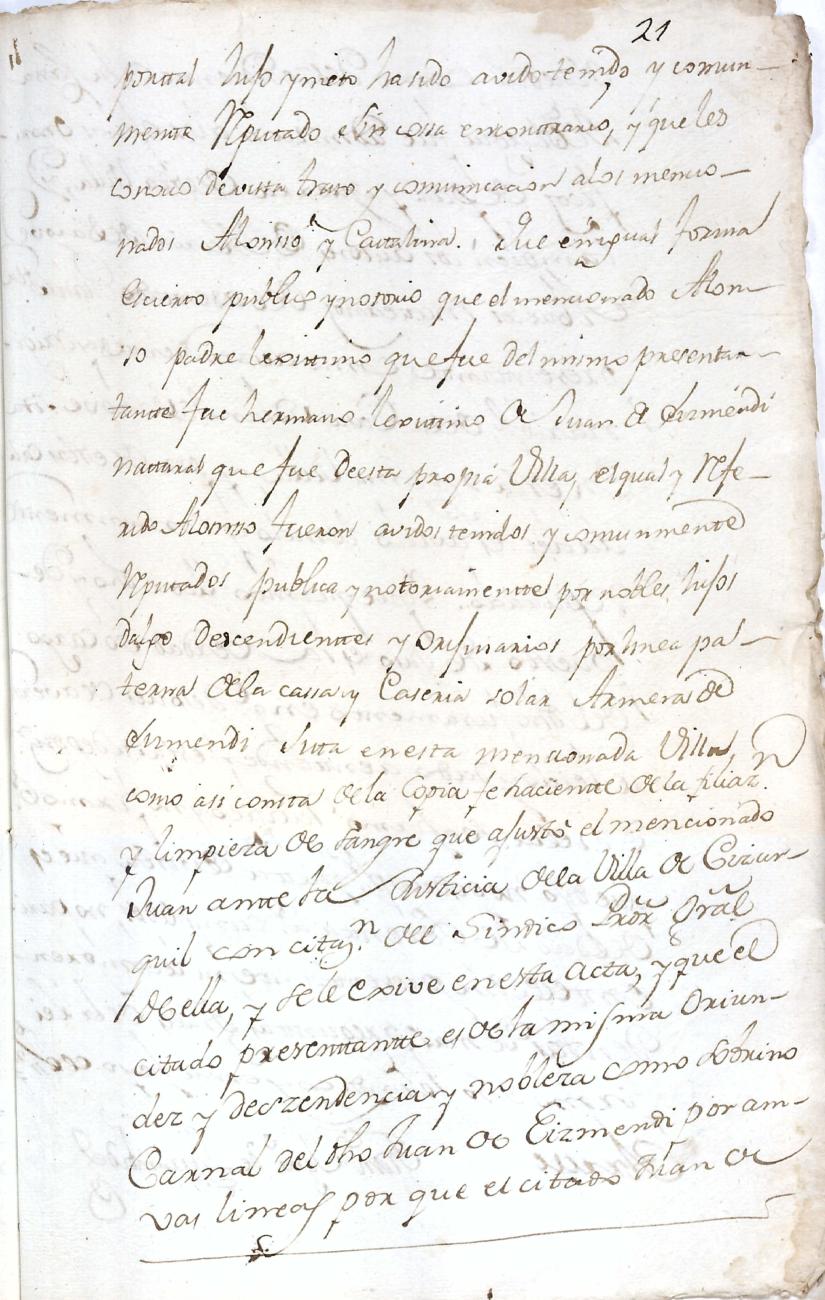 21
porttal hijo y nieto ha sido avido tenido y comun-
mente Reputado sin cossa en conttrario, y que les
conocio de vista trato y comunicacion a los mencio-
nados Alonsso y Cattalina. Que en igual forma
es cierto publico y notorio que el mencionado Alon-
so padre lexittimo que fue del mismo presentan-
tantte fue hermano lexittimo de Juan de Eizmendi
natural que fue de esta propia Villa, el qual y Refe-
rido Alonsso fueron avidos tenidos y comunmente
Reputados publica y notoriamentte por nobles hijos
dalgo descendienttes y orijinarios por linea pa-
terna de la cassa y Caseria solar Armera de
Eizmendi sita en esta mencionada Villa,
como asi consta de la Copia fe hacientte de la filiaz.n
y limpieza de sangre que ajustó el mencionado
Juan antte la Justicia de la Villa de Cizur-
quil con citaz.n del Sindico Prór Grâl
de ella, y se le exive en esta Acta, y que el
citado presenttantte es de la misma oriun-
dez y deszendencia y nobleza como sobrino
Carnal del dho Juan de Eizmendi por am-
vas lineas por que el citado Juan de